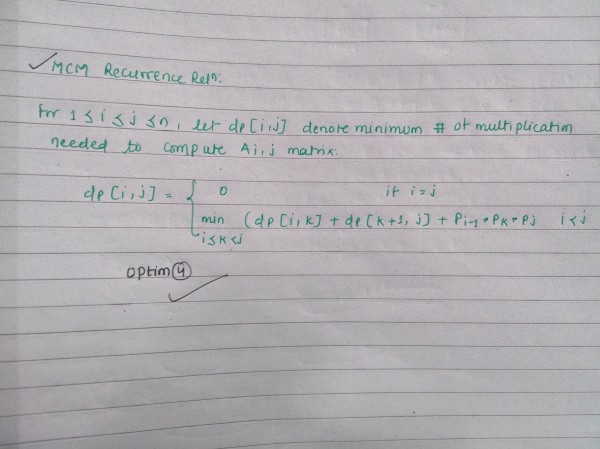 ✓ MCM Recurrence Relⁿ:
For 1 ≤ i ≤ j ≤ n, let dp[i,j] denote minimum # of multiplication
needed to compute Ai,j matrix.
dp[i,j] = { 0 if i=j
min (dp[i,k] + dp[k+1,j] + Pi-1 * Pk * Pj i<j
i≤k<j
optim④
✓